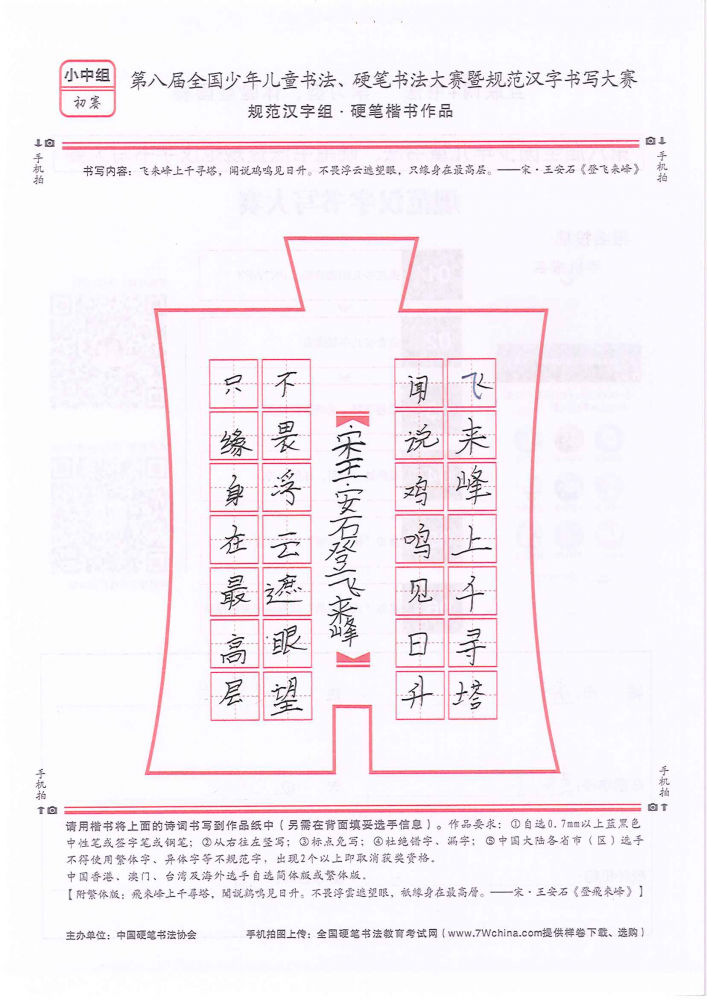 小中组
初赛
第八届全国少年儿童书法、硬笔书法大赛暨规范汉字书写大赛
规范汉字组·硬笔楷书作品
手机拍
手机拍
书写内容：飞来峰上千寻塔，闻说鸡鸣见日升。不畏浮云遮望眼，只缘身在最高层。——宋·王安石《登飞来峰》
飞来峰上千寻塔
闻说鸡鸣见日升
宋王安石登飞来峰
不畏浮云遮眼望
只缘身在最高层
手机拍
手机拍
请用楷书将上面的诗词书写到作品纸中（另需在背面填妥选手信息）。作品要求：①自选0.7mm以上蓝黑色
中性笔或签字笔或钢笔；②从右往左竖写；③标点免写；④杜绝错字、漏字；⑤中国大陆各省市（区）选手
不得使用繁体字、异体字等不规范字，出现2个以上即取消获奖资格。
中国香港、澳门、台湾及海外选手自选简体版或繁体版。
【附繁体版：飛来峰上千尋塔，聞説鷄鳴見日昇。不畏浮雲遮望眼，衹緣身在最高層。——宋·王安石《登飛來峰》】
主办单位：中国硬笔书法协会
手机拍图上传：全国硬笔书法教育考试网（www.7Wchina.com提供样卷下载、选购）